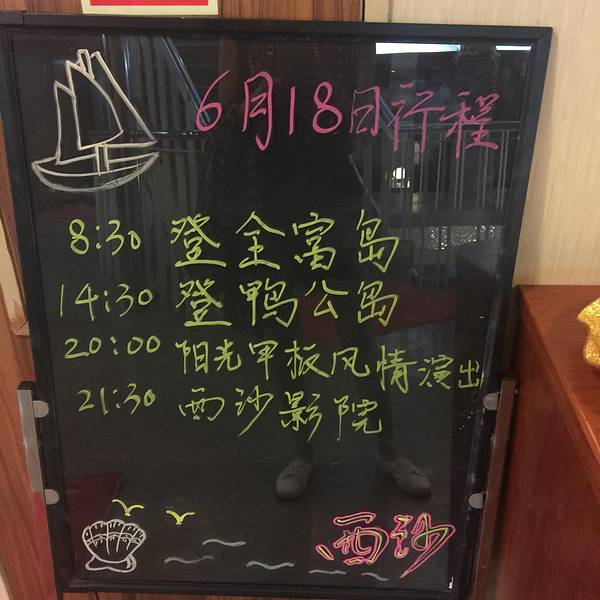 6月18日行程
8:30 登全富岛
14:30 登鸭公岛
20:00 阳光甲板风情演出
21:30 西沙影院
西沙